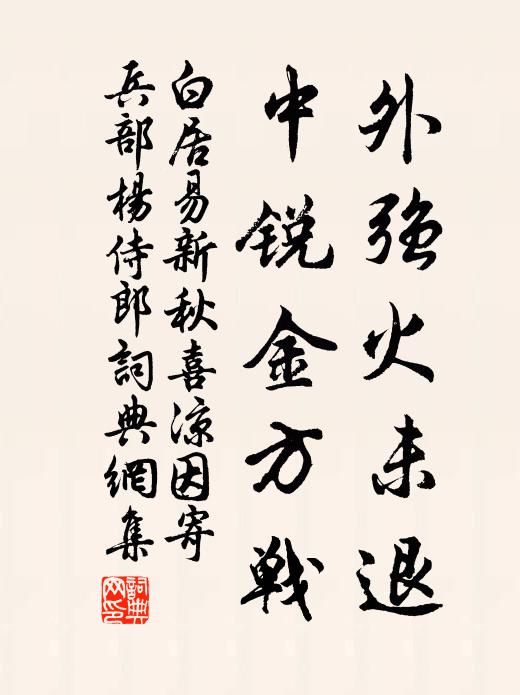 外強火未退
中銳金方戰
白居易新秋喜涼因寄
兵部楊侍郎詞典網集
詞典
网印